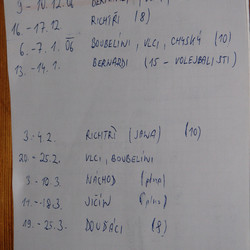 9 - 10.12.
16. - 17.12. RICHTŘI (8)
6. - 7.1. 06 BOUBELÍNI, VLCI, (10)
13. - 14.1. BERNARDI (15 - VOLEJBALISTI)
3. - 4.2. RICHTŘI (JAWA) (10)
24. - 25.2. VLCI, BOUBELÍNI
- 10.3. NÁCHOD (plno)
- 18.3. JIČÍN (plno)
19. - 25.3. DOUŠÁCI (8)